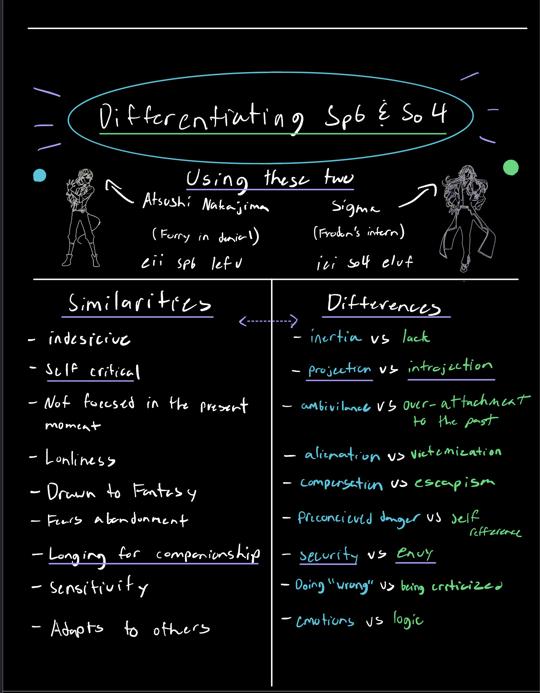 Differentiating Sp6 & So4
Using these two
Atsushi Nakajima
(Furry in denial)
eii sp6 lefv
Sigma
(Frodon's intern)
iei so4 elvf
Similarities
- indesicive
- Self critical
- Not focused in the present
moment
- Lonliness
- Drawn to Fantasy
- Fears abandonment
- Longing for companionship
- Sensitivity
- Adapts to others
Differences
- inertia vs lack
- projection vs introjection
- ambivilance vs over-attachment
to the past
- alienation vs victemization
- compensation vs escapism
- preconcieved danger vs self
refference
- security vs envy
- Doing "wrong" vs being criticized
- emotions vs logic